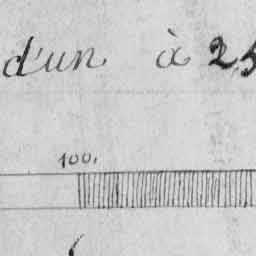 d'un à 25
100.